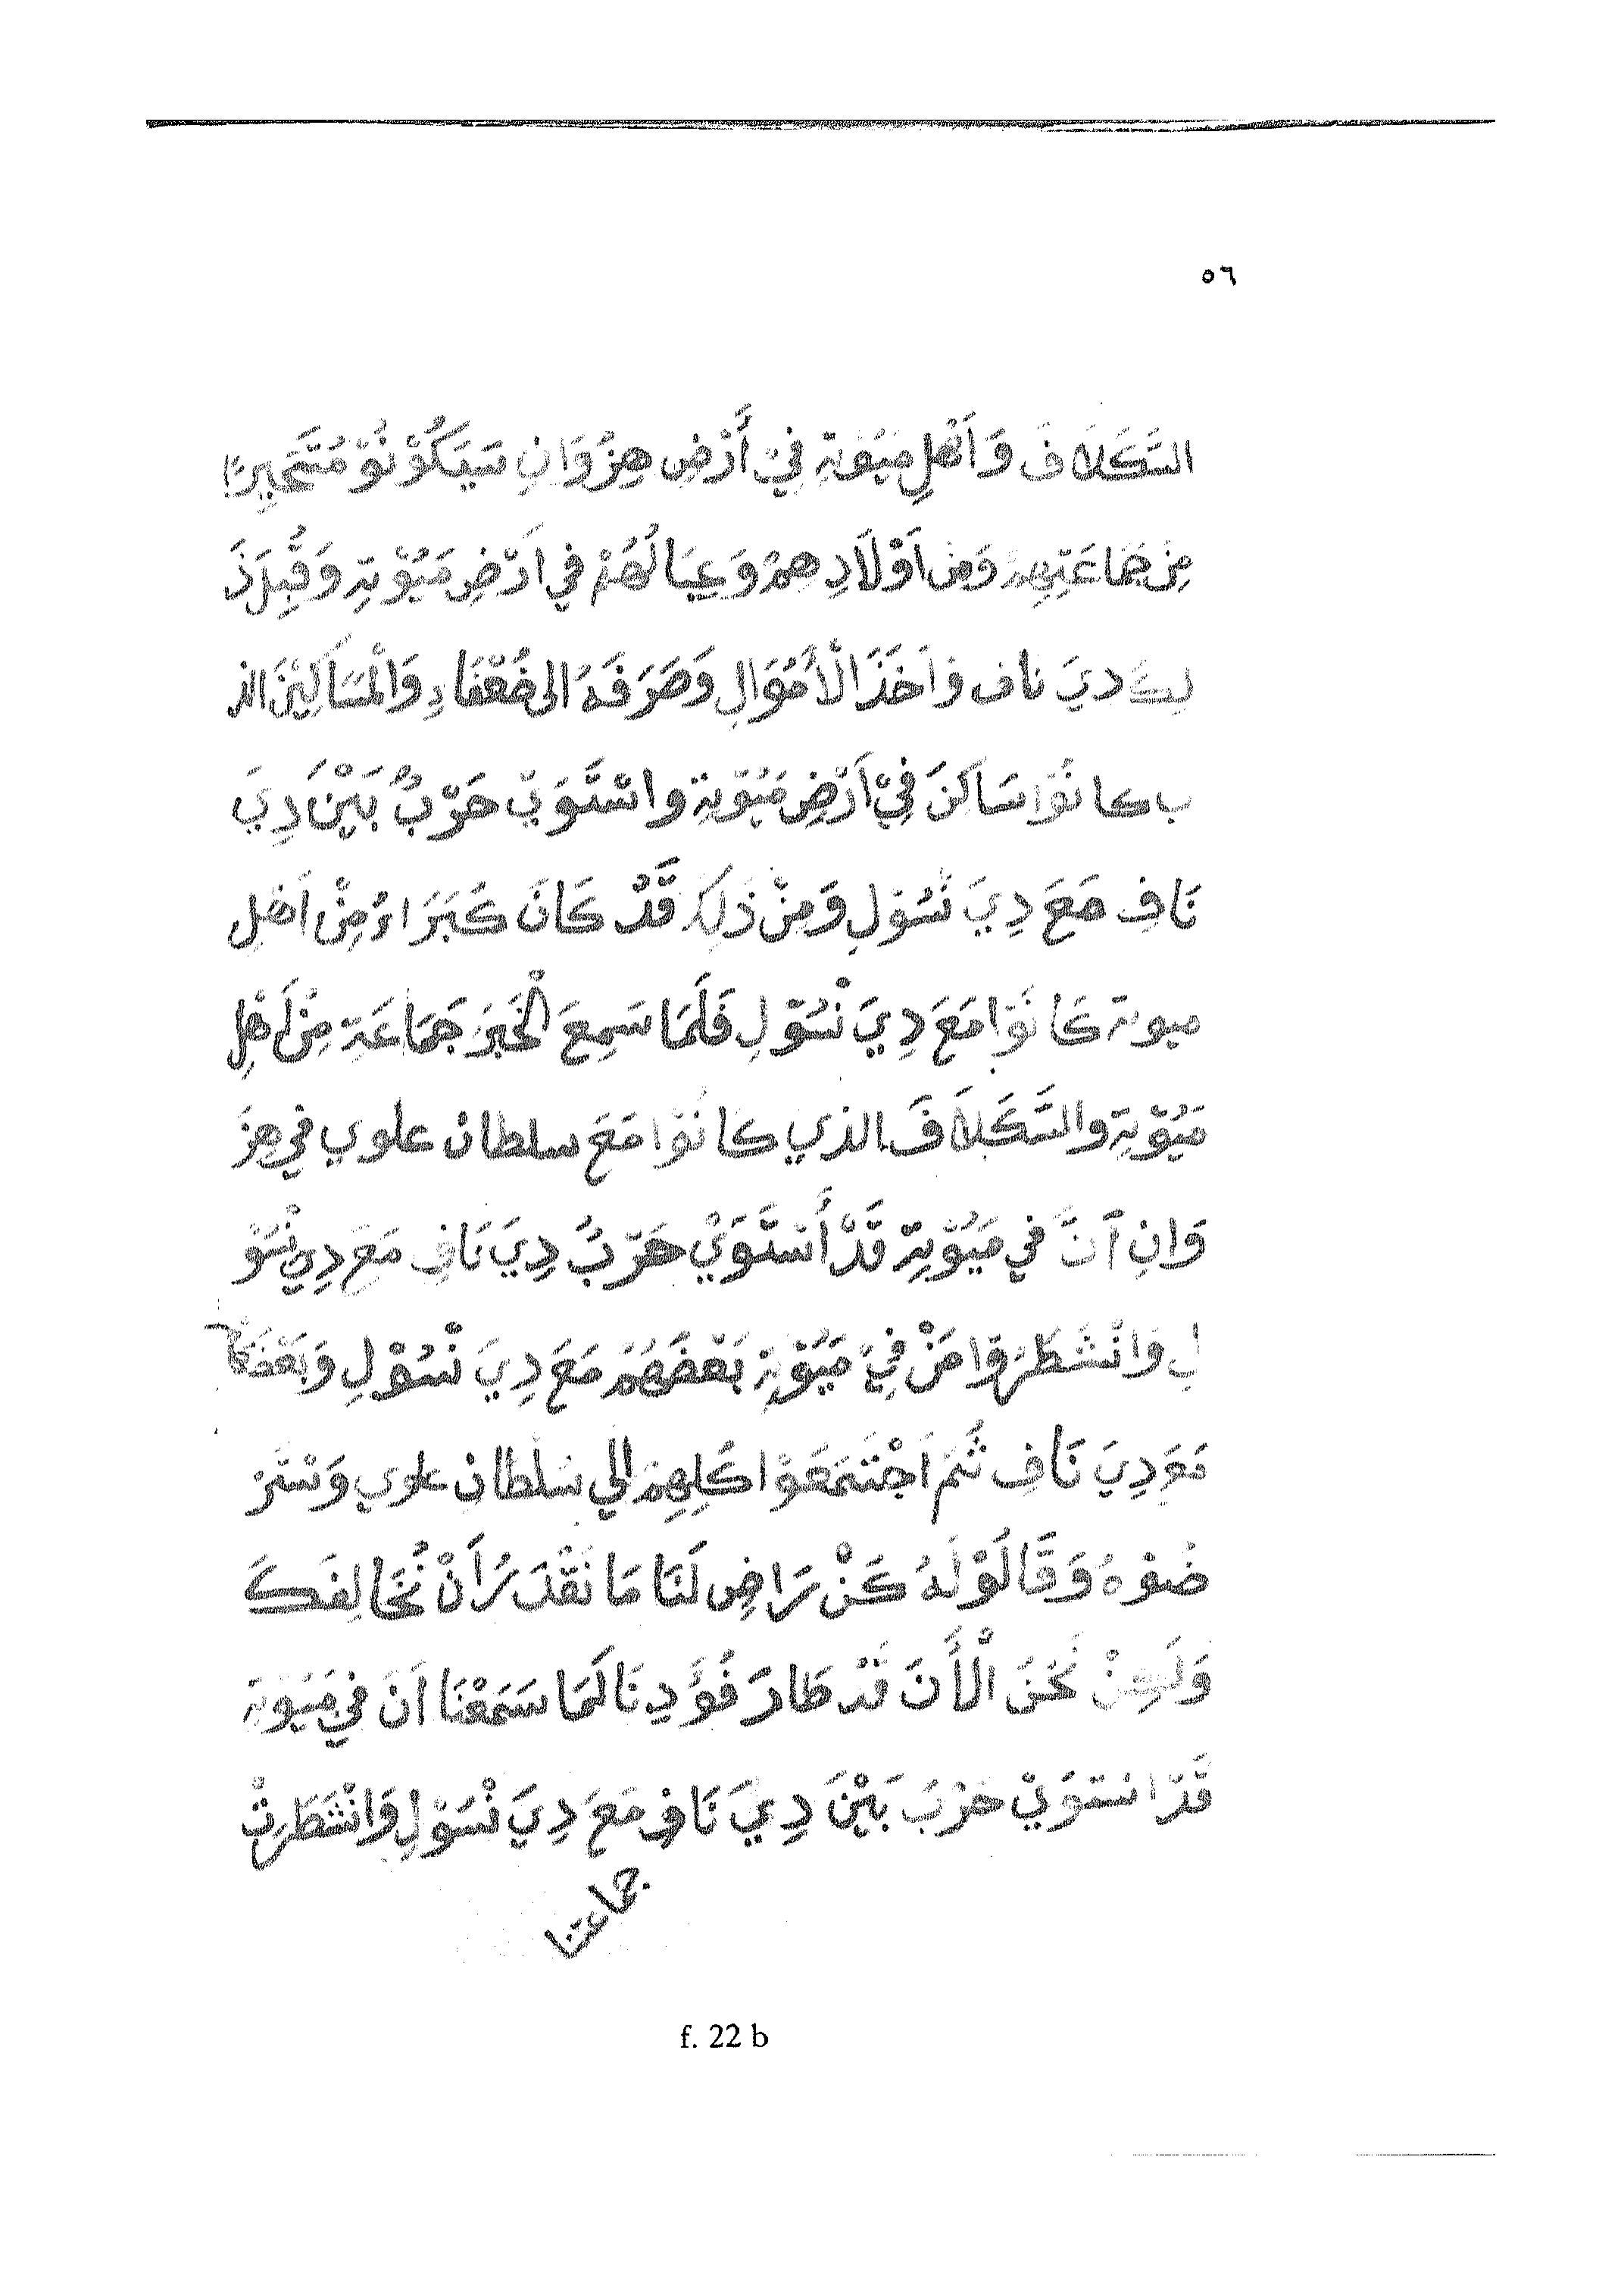 ٥٦
السَّكَلَافَ وَاَهْلِ مَيُوْتِهْ فِيْ أَرْضِ هِنْزُوَانِ سَيَكُوْنُوْ مُتَحَيِرًا
مِنْ جَمَاعَتِهِمْ وَمِنْ اَوْلَادِهِمْ وَعِيَالُهُمْ فِي اَرْضِ مَيُوْتِهِ وَقَبِلَ ذَ
لِكَ دِيَ نَاف وَاَخَذَ الْأَمْوَالِ وَصَرَفَهُ الى ضُعْفَاءِ وَالْمَسَاكِيْنَ الذ
ي كانُوْا سَاكَنَ فِيْ اَرْضِ مَيُوْتِهْ واسْتَوَيْ حَرْبُ بَيْنَ دِيَ
نَافِ مَعَ دِيَ نْسُوْلِ وَمِنْ ذَلِكَ قَدْ كَانَ كُبَرَاءُ مِنْ اَهْلِ
ميوتة كَانُوْا مَعَ دِيَ نْسُوْلِ فَلَمَا سَمِعَ الْخَبَرَ جَمَاعَةِ مِنْ اَهْلِ
مَيُوْتِهْ وَالسَّكَلَافَ الذي كَانُوْا مَعَ سلطان علوي في هِنْزُ
وَانِ اَنَّ فِي مَيُوْتِهْ قَدْ أَسْتَوَيْ حَرْبُ دِيَ نَافِ مَعَ دِيَ نْسُوْ
لِ وَانْشَطَرُوْا مَنْ فِيْ مَيُوْتِهْ بَعْضَهُمْ مَعَ دِيَ نْسُوْلِ وَبَعْضَهُمْ
مَعَ دِيَ نَافِ ثُمَ اَجْتَمَعُوْا كُلِهِمْ الي سُلْطَانْ علوي وَسْتَرْ
ضُوْهُ وَقَالُوْ لَهُ كَنْ رَاضِ لَنَا مَا نَقْدَرُ أَنْ نُخَالِفَكَ
وَلَكِنْ نَحْنُ الْأَنَ قَدْ طَارَ فُؤَدِنَا لَمَا سَمَعْنَا اَنَ فِي مَيُوْتِهْ
قَدْ اسْتَوَيْ حَرْبُ بَيْنَ دِيَ نَافِ مَعَ دِيَ نْسُوْلِ وَانْشَطَرِتْ
جماعتنا
f. 22 b